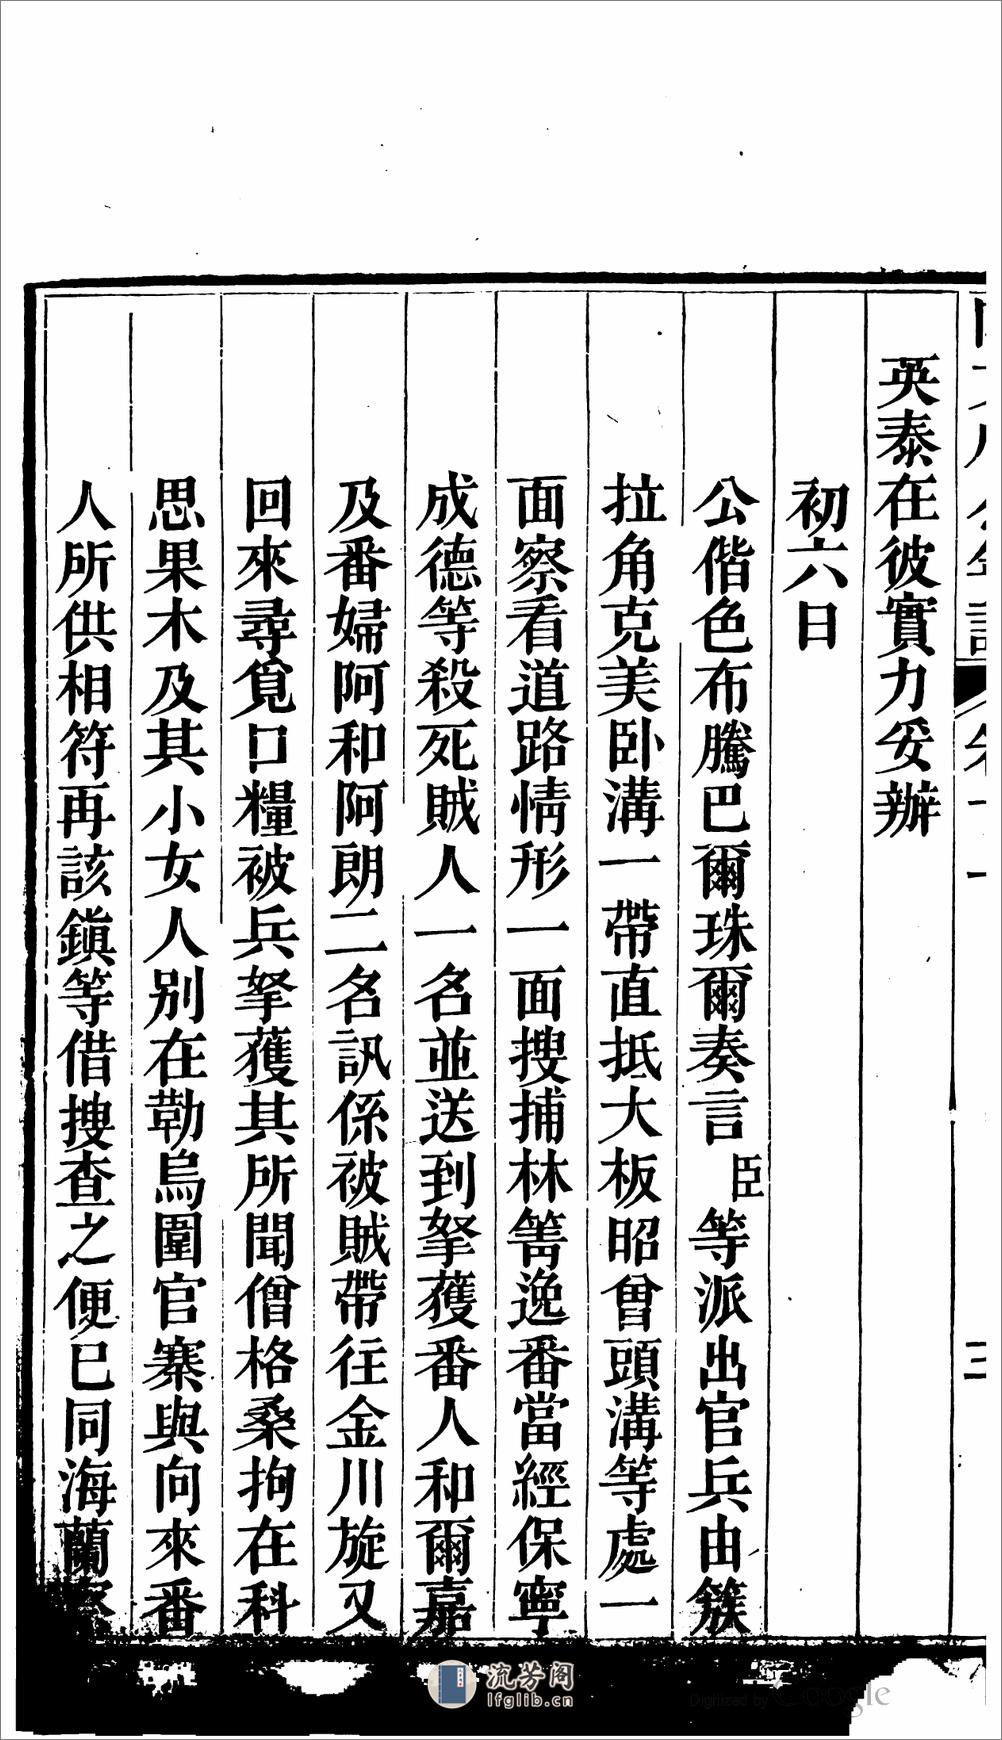 英泰在彼實力妥辦
初六日
公偕色布騰巴爾珠爾奏言臣等派出官兵由簇
拉角克美卧溝一帶直抵大板昭曾頭溝等處一
面察看道路情形一面搜捕林箐逸番當經保寧
成德等殺死賊人一名並送到拏獲番人和爾嘉
及番婦阿和阿朗二名訊係被賊帶往金川旋又
回來尋覓口糧被兵拏獲其所聞僧格桑拘在科
思果木及其小女人別在勒烏圍官寨與向來番
人所供相符再該鎮等借搜查之便已同海蘭察
流芳阁
lfglib.cn
Digitized by Google